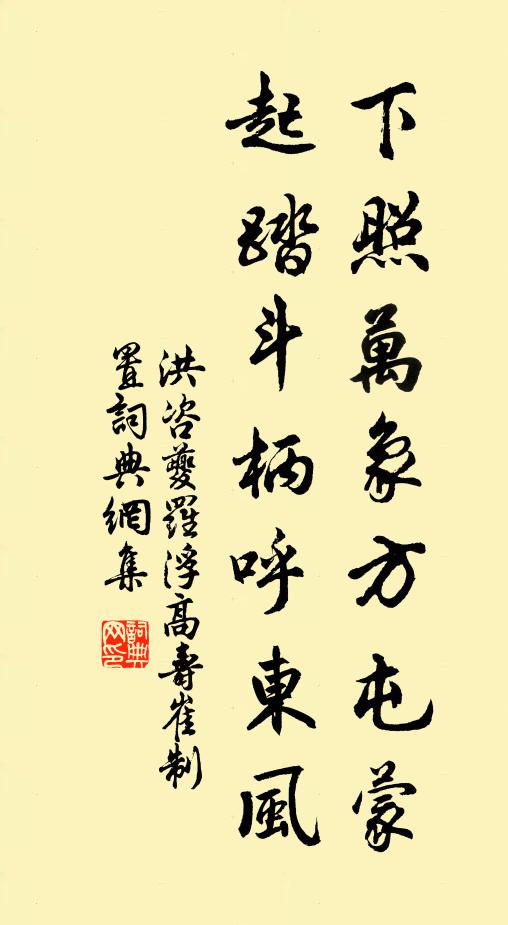 下照萬象方屯蒙
起踏斗柄呼東風
洪咨夔羅浮高壽崔制
置詞典網集
詞典
网印